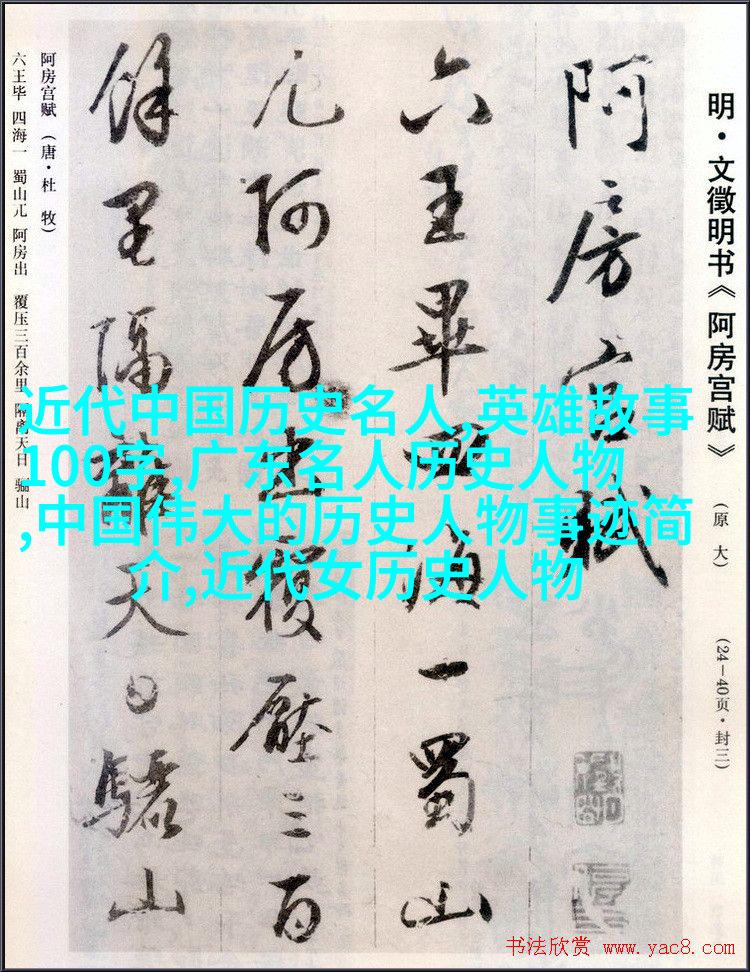 明·文徵明书《阿房宫赋》（原大）（24—40页·封三）
阿房宫赋
六王畢四海一蜀山
兀阿房出覆壓三百
餘里隔離天日驪山
阿房宫赋（唐·杜 牧）
六王毕 四海一 蜀山兀 阿房出 覆压三百余里 隔离天日 骊山
近代中国历史名人,英雄故事
100字,广东名人历史人物
,中国伟大的历史人物事迹简
介,近代女历史人物
书法欣赏 www.yac8.com